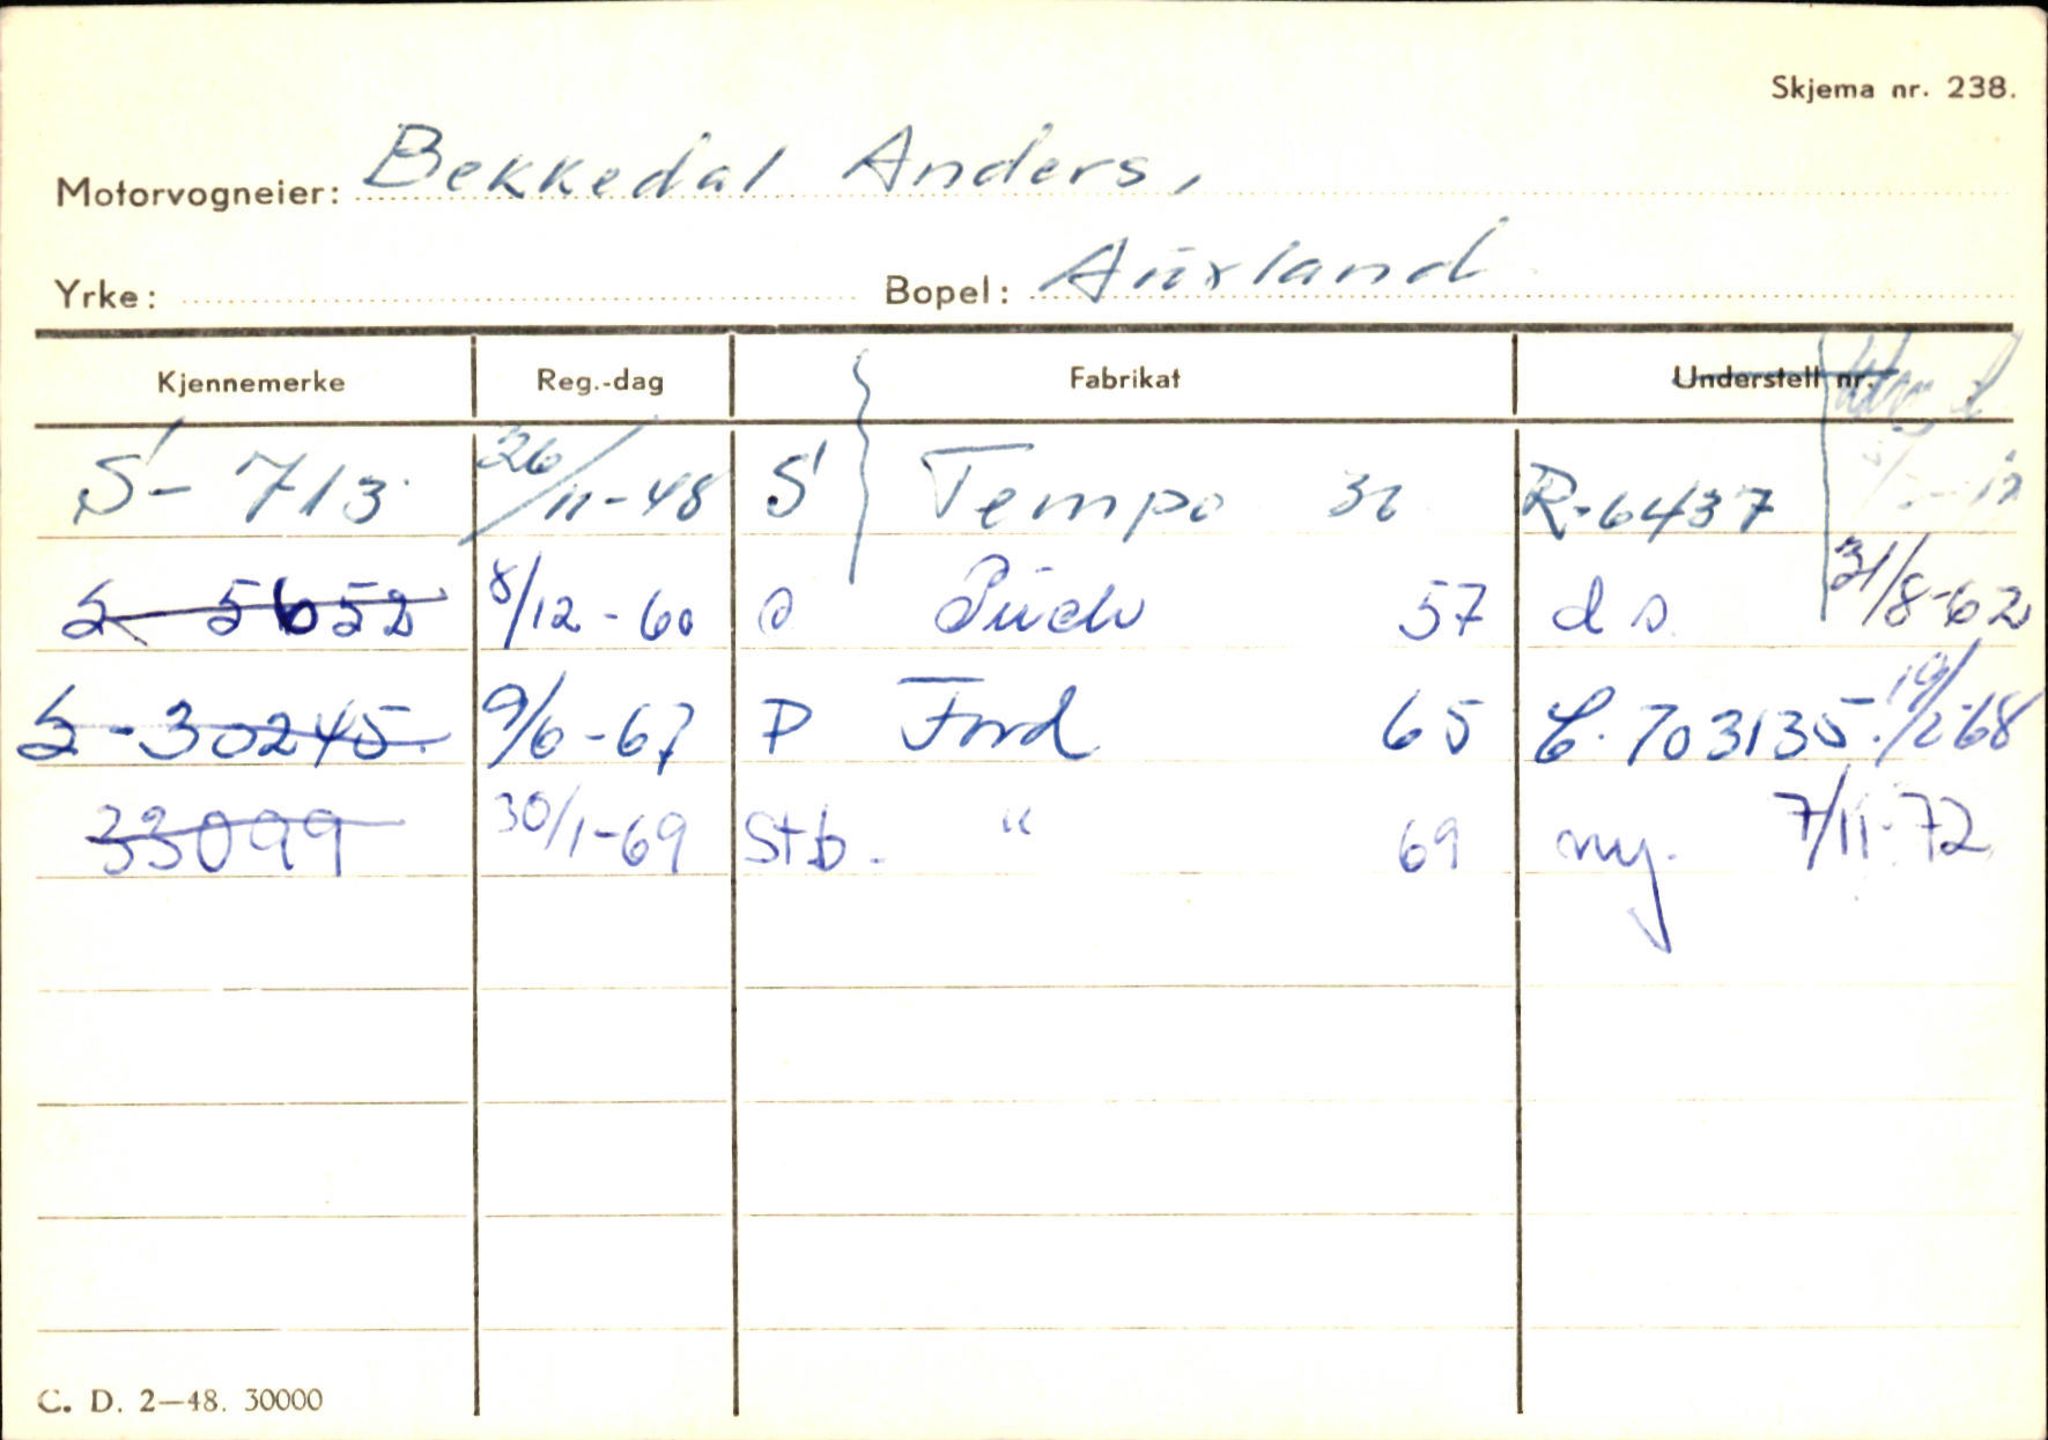 Skjema nr. 238.
Motorvogneier: Bekkedal Anders,
Yrke: Bopel: Aurland
Kjennemerke Reg.-dag Fabrikat Understell nr.
S- 713 26/11-48 S Tempo R-6437
S 5652 8/12-60 Püch 57 d s. 31/8-62
S-30245 9/6-67 P Ford 65 703135. 19/2-68
33099 30/1-69 Stb. " 69 ny. 7/11-72
C. D. 2—48. 30000